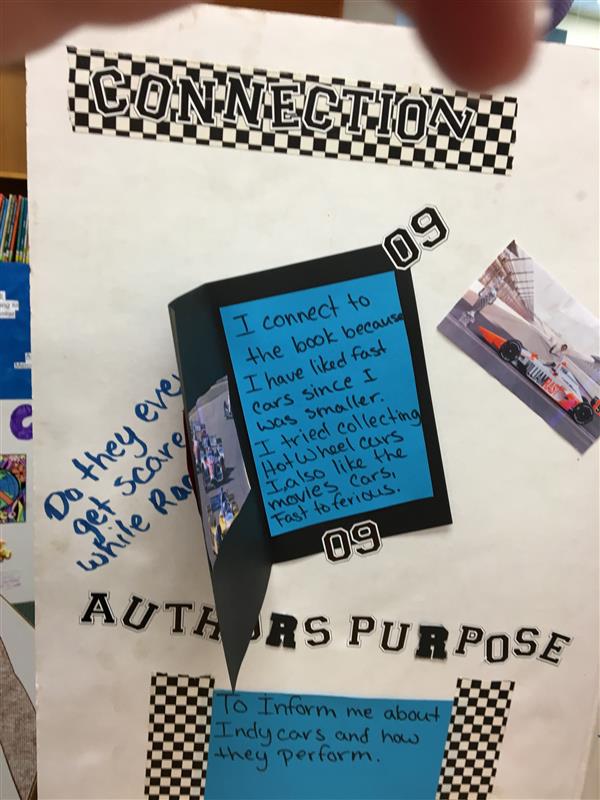 CONNECTION
09
I connect to
the book because
I have liked fast
cars since I
was smaller.
I tried collecting
Hotwheel cars
I, also like the
movies cars,
Fast to ferious.
09
Do they eve
get scare
while Rac
AUTHORS PURPOSE
To Inform me about
Indycars and how
they perform.